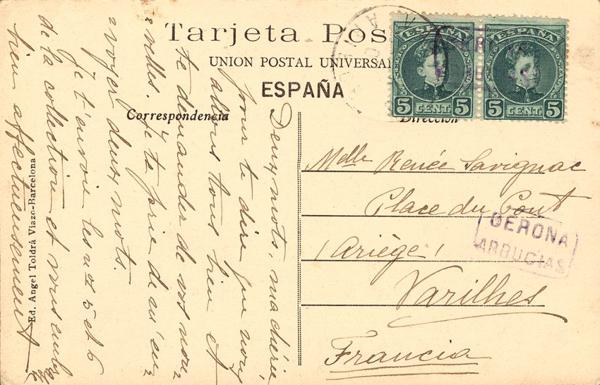 Tarjeta Pos
UNION POSTAL UNIVERSA
ESPAÑA
Correspondencia
Dirección
ESPAÑA
5 CENT. 5
ESPAÑA
5 CENT. 5
Deux mots, ma chérie
pour te dire que nous
allons tous bien et
te demander de vos nou-
velles. Je te prie de m'en-
voyer deux mots.
Je t'envoie les nos 5 et 6
de la collection et vous
bien affectueusement
Melle Renée Savignac
Place du Pont
(Ariège)
Varilhes
Francia
GERONA
ARBUCIAS
Ed. Angel Toldrá Viazo-Barcelona